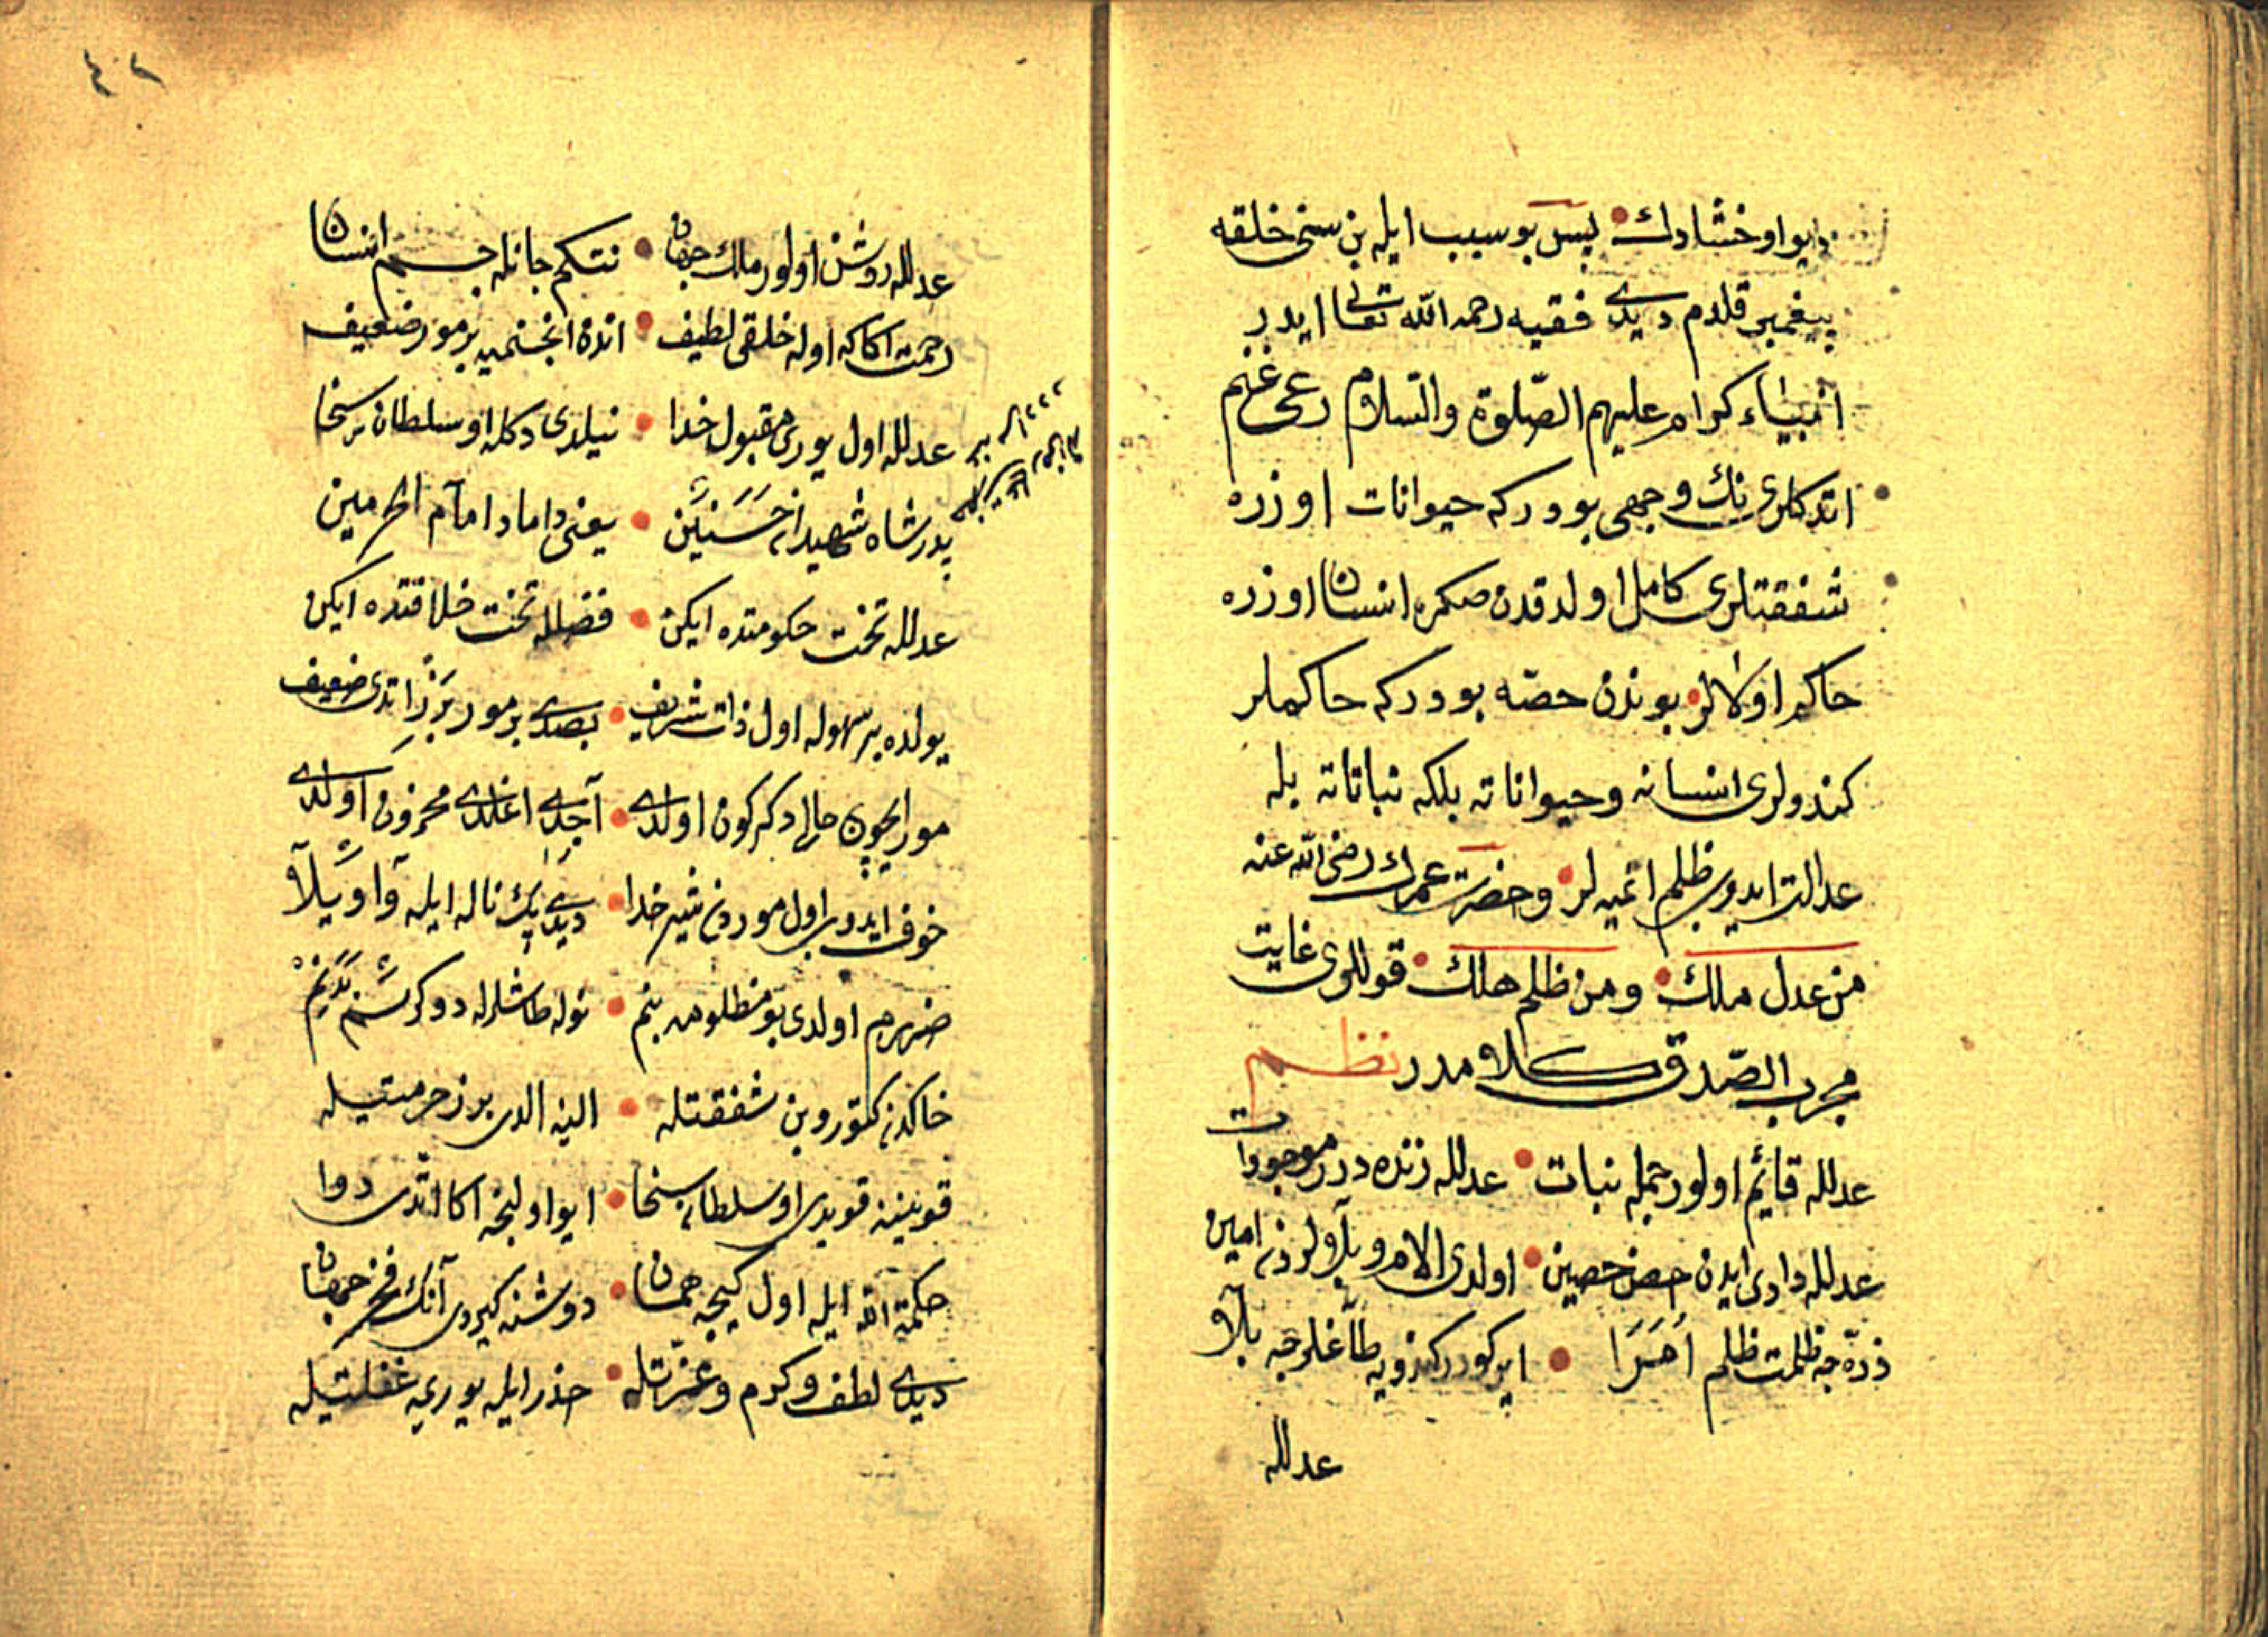 ديو اوخشادك بس بو سبب ايله بن سنى خلقه
پيغمبر قلدم ديدى فقيه رحمه الله تعالى ايدر
انبياء كرام عليهم الصّلوة والسّلام رعى غنم
اتدكلرى نك وجهى بودركه حيوانات اوزره
شفقتلرى كامل اولدقدن صكره انسان اوزره
حاكم اولالر بوندن حصّه بودركه حاكملر
كندولرى انسانه وحيواناته بلكه نباتاته بله
عدالت ايدوب ظلم اتميه لر وحضرت عمرك رضى الله عنه
من عدل ملك ومن ظلم هلك قوللرى غايت
مجرب الصّدق كلامدر نظم
عدلله قائم اولور جمله نبات عدلله زنده در موجودات
عدلله وادى ايدن حصن حصين اولدى الام وبلاولردن امين
ذرّه جه ظلمت ظلم اُمَرَا ايركورر كندويه طاغلرجه بلا
عدلله
٤٢
عدلله روشن اولور ملك جهان نتكم جانله جسم انسان
رحمت اكا كه اوله خلقى لطيف انده انجنميه بر مور ضعيف
عدلله اول يورى مقبول خدا نيلدى دكله او سلطان سخا
پدر شاه شهيدان حَسَنَيْن يعنى داماد امام الحرمين
عدلله تخت حكومتده ايكن فضلله تخت خلافتده ايكن
يولده بر سهوله اول ذات شريف بصدى بر مور بَرَز اتدى ضعيف
مور ايچون حالى دكركون اولدى آجدى اغلدى محزون اولدى
خوف ايدوب اول موردن شير خدا ديدى پك ناله ايله واويلا
ضررم اولدى بو مظلومه بنم نوله طاشلرله دوكرسم بدنم
خاكدن كتوروبن شفقتله الينه الدى براز حرمتيله
قوينينه قويدى او سلطان سخا ايو اولنجه اكا اتدى دوا
حكمة الله ايله اول كيجه همان دوشنه كيردى آنك فخر جهان
ديدى لطف وكرم وعزّتله حذر ايله يوريمه غفلتيله